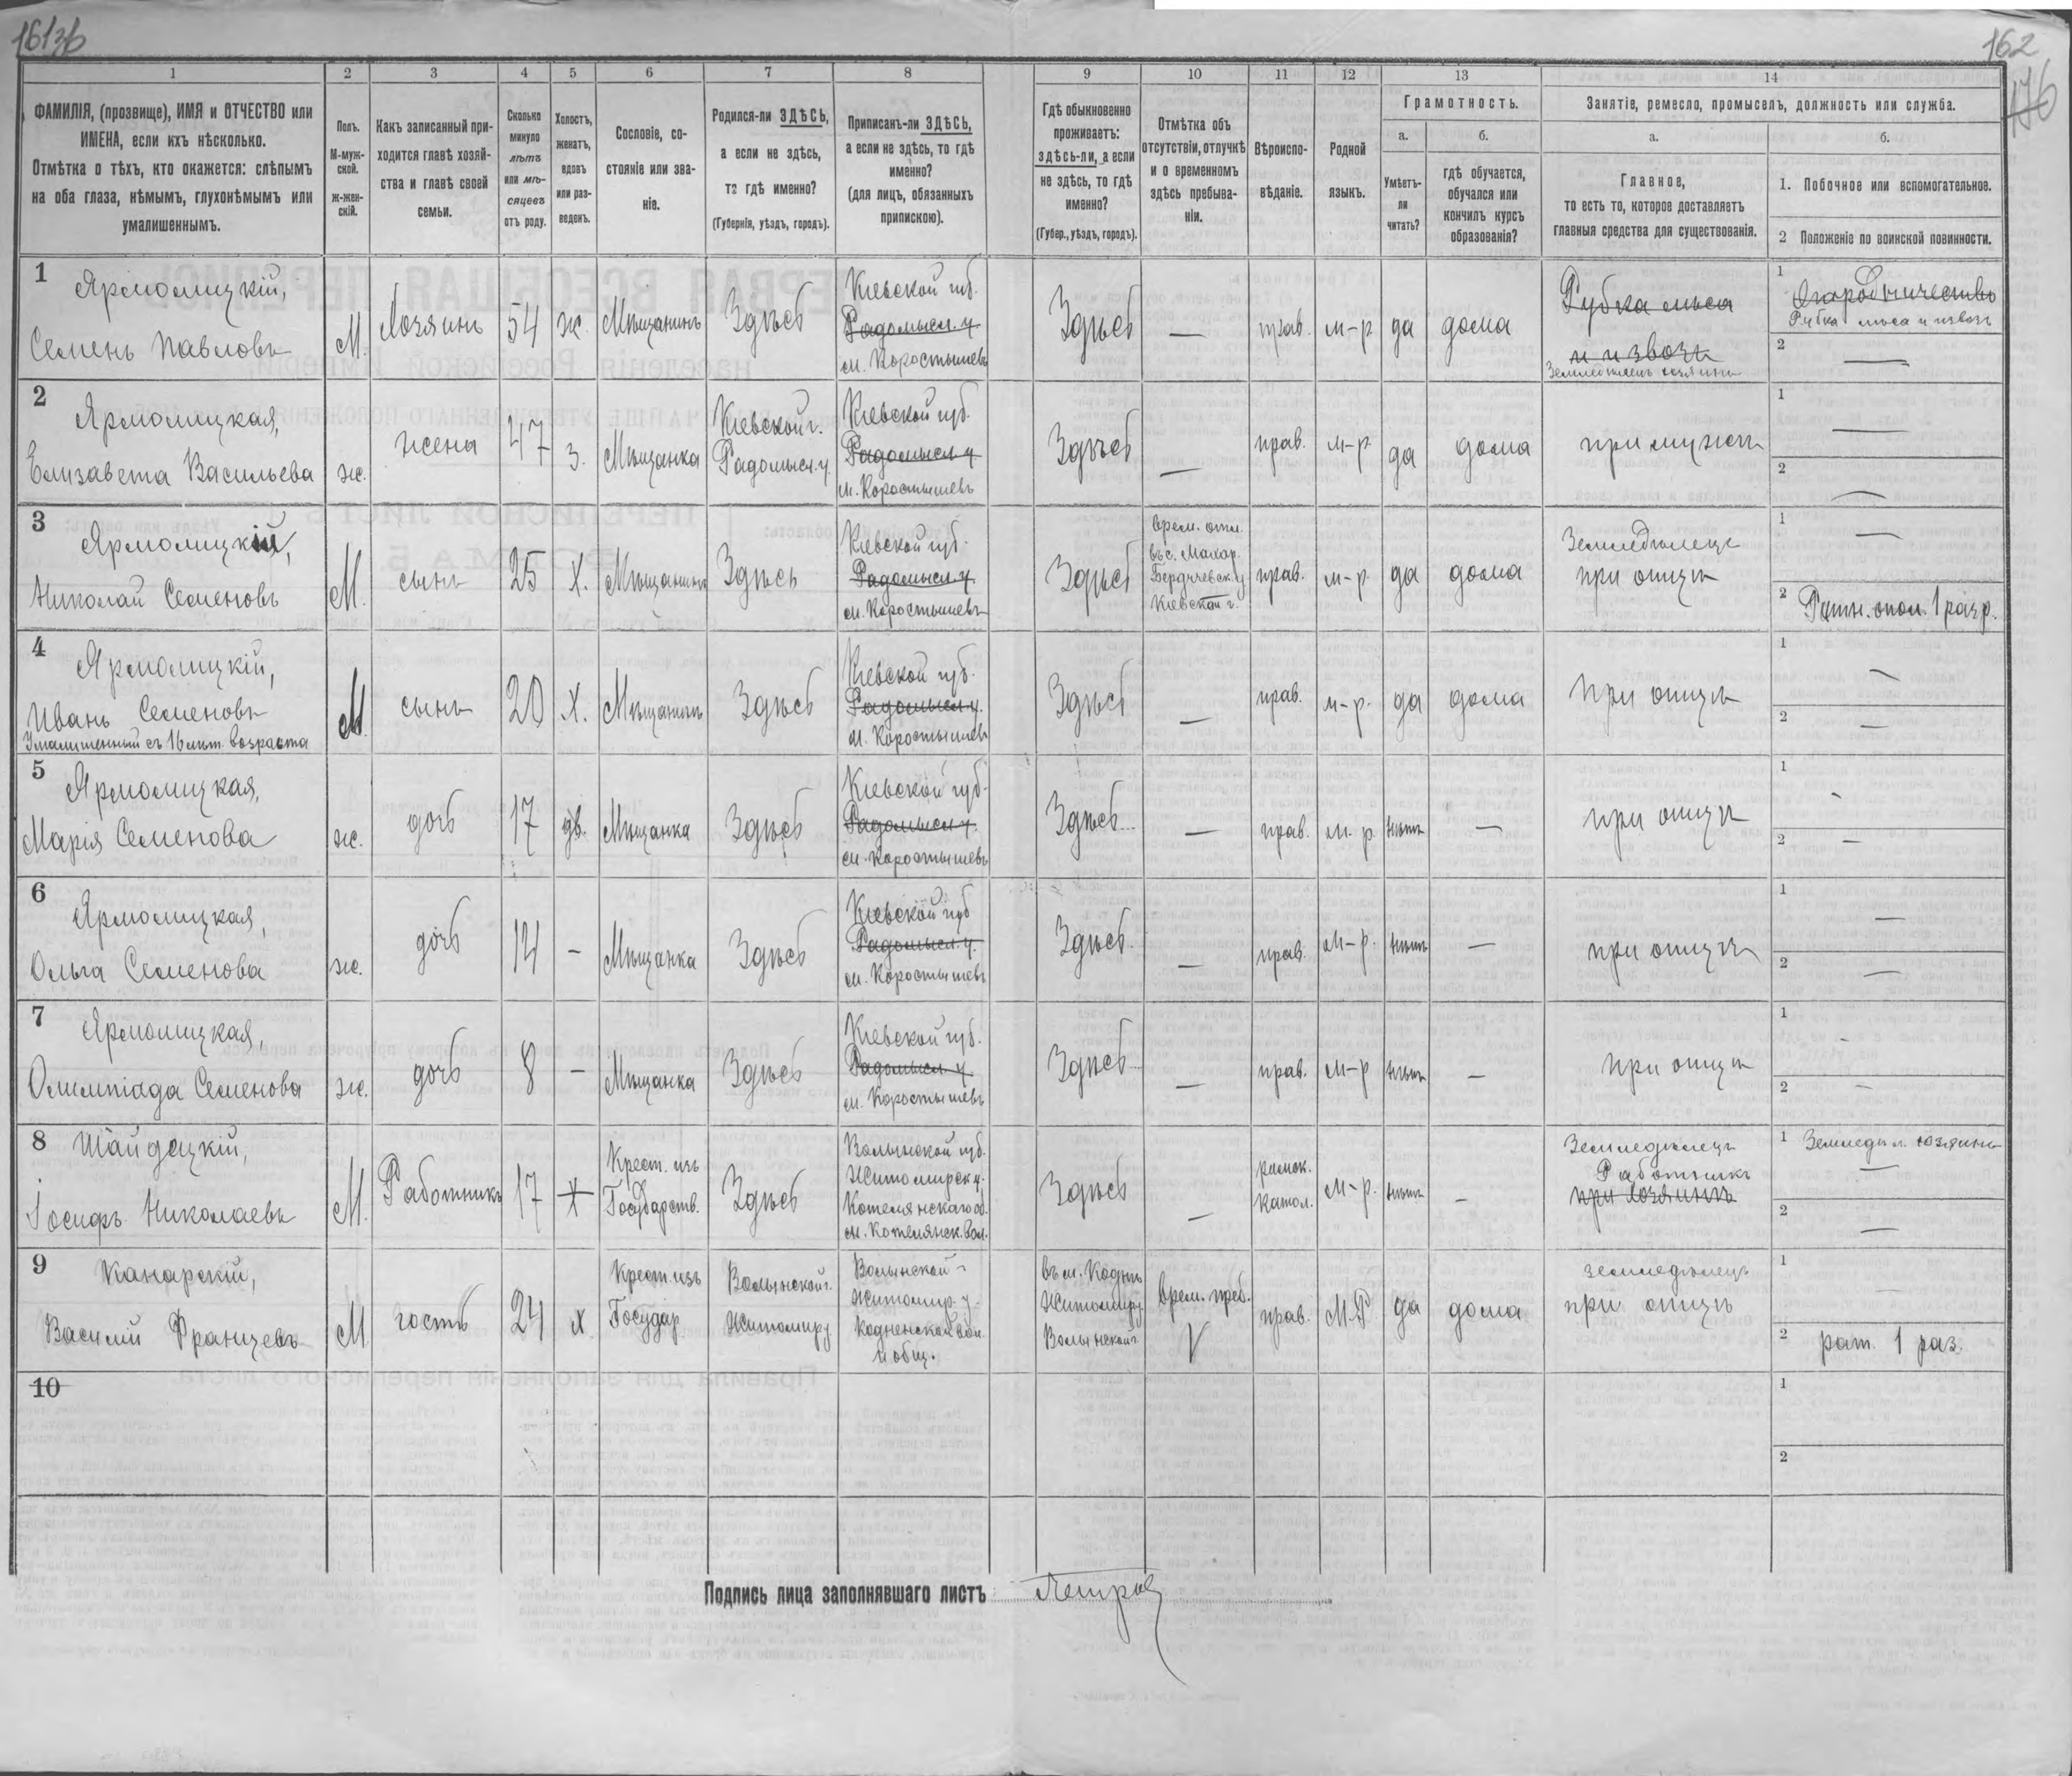 161зб
162
176
1 2 3 4 5 6 7 8 9 10 11 12 13 14
ФАМИЛІЯ, (прозвище), ИМЯ и ОТЧЕСТВО или
ИМЕНА, если ихъ нѣсколько.
Отмѣтка о тѣхъ, кто окажется: слѣпымъ
на оба глаза, нѣмымъ, глухонѣмымъ или
умалишеннымъ.
Полъ.
М-муж-
ской.
ж-жен-
скій.
Какъ записанный при-
ходится главѣ хозяй-
ства и главѣ своей
семьи.
Сколько
минуло
лѣтъ
или мѣ-
сяцевъ
отъ роду.
Холостъ,
женатъ,
вдовъ
или раз-
веденъ.
Сословіе, со-
стояніе или зва-
ніе.
Родился-ли ЗДѢСЬ,
а если не здѣсь,
то гдѣ именно?
(Губернія, уѣздъ, городъ).
Приписанъ-ли ЗДѢСЬ,
а если не здѣсь, то гдѣ
именно?
(для лицъ, обязанныхъ
припискою).
Гдѣ обыкновенно
проживаетъ:
здѣсь-ли, а если
не здѣсь, то гдѣ
именно?
(Губер., уѣздъ, городъ).
Отмѣтка объ
отсутствіи, отлучкѣ
и о временномъ
здѣсь пребыва-
ніи.
Вѣроиспо-
вѣданіе.
Родной
языкъ.
Грамотность.
а.
Умѣетъ-
ли
читать?
б.
гдѣ обучается,
обучался или
кончилъ курсъ
образованія?
Занятіе, ремесло, промыселъ, должность или служба.
а.
Главное,
то есть то, которое доставляетъ
главныя средства для существованія.
б.
1. Побочное или вспомогательное.
2 Положеніе по воинской повинности.
1
Ярмолицкій,
Семенъ Павловъ
М.
Хозяинъ
54
ж.
Мѣщанинъ
Здѣсь
Кіевской губ.
Радомысл. у.
м. Коростышевъ
Здѣсь
—
прав.
м-р
да
дома
Рубка лѣса
и извозъ
Земледѣлецъ хозяинъ
1
Рубка лѣса и извозъ
2 —
2
Ярмолицкая,
Елизавета Васильева
ж.
жена
47
з.
Мѣщанка
Кіевской г.
Радомысл. у
Кіевской губ.
Радомысл. у
м. Коростышевъ
Здѣсь
—
прав.
м-р
да
дома
при мужѣ
1 —
2 —
3
Ярмолицкій,
Николай Семеновъ
М.
сынъ
25
Х.
Мѣщанинъ
Здѣсь
Кіевской губ.
Радомысл. у.
м. Коростышевъ
Здѣсь
врем. отл.
въ с. Макар.
Бердичевск. у
Кіевской г.
прав.
м-р
да
дома
Земледѣлецъ
при отцѣ
1 —
2 Ратн. опол. 1 разр.
4
Ярмолицкій,
Иванъ Семеновъ
Умалишенный съ 16 лѣт. возраста
М.
сынъ
20
Х.
Мѣщанинъ
Здѣсь
Кіевской губ.
Радомысл. у.
м. Коростышевъ
Здѣсь
—
прав.
м-р.
да
дома
при отцѣ
1 —
2 —
5
Ярмолицкая,
Марія Семенова
ж.
дочь
17
дв.
Мѣщанка
Здѣсь
Кіевской губ.
Радомысл. у.
м. Коростышевъ
Здѣсь
—
прав.
м-р
нѣтъ
—
при отцѣ
1 -
2 —
6
Ярмолицкая,
Ольга Семенова
ж.
дочь
14
-
Мѣщанка
Здѣсь
Кіевской губ
Радомысл. у.
м. Коростышевъ
Здѣсь
—
прав.
м-р.
нѣтъ
—
при отцѣ
1 —
2 —
7
Ярмолицкая,
Олимпіада Семенова
ж.
дочь
8
-
Мѣщанка
Здѣсь
Кіевской губ.
Радомысл. у
м. Коростышевъ
Здѣсь
—
прав.
м-р
нѣтъ
—
при отцѣ
1 -
2 —
8
Шайдецкій,
Іосифъ Николаевъ
М.
Работникъ
17
Х
Крест. изъ
Государств.
Здѣсь
Волынской губ.
Житомирск у.
Котелянскаго об.
м. Котелянск. вол.
Здѣсь
—
римск.
катол.
м-р.
нѣтъ
-
Земледѣлецъ
Работникъ
при хозяинѣ
1 Земледѣл. хозяинъ
—
2 —
9
Канарскій,
Василій Францевъ
М
гость
24
х
Крест. изъ
Государ
Волынской г.
Житомиру
Волынской г
Житомир. у.
Кодненской вол.
и общ.
въ м. Коднѣ
Житомиру
Волынской г.
врем. преб.
V
прав.
М.Р
да
дома
земледѣлецъ
при отцѣ
1 —
2 рат. 1 раз.
10
1
2
Подпись лица заполнявшаго листъ